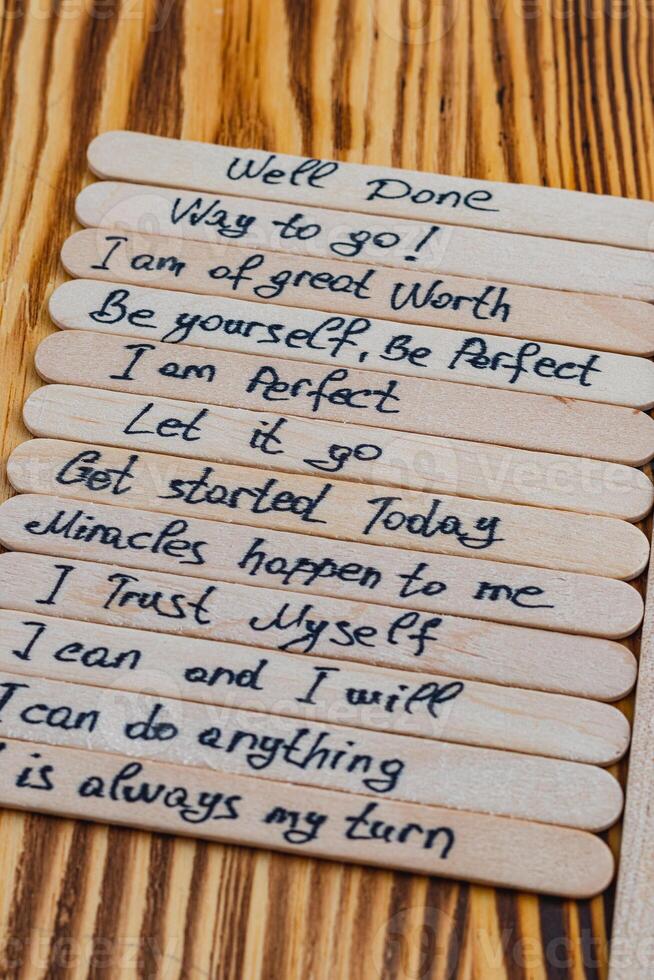 Well Done
Way to go!
I am of great Worth
Be yourself, Be Perfect
I am Perfect
Let it go
Get started Today
Miracles happen to me
I Trust Myself
I can and I will
I can do anything
is always my turn